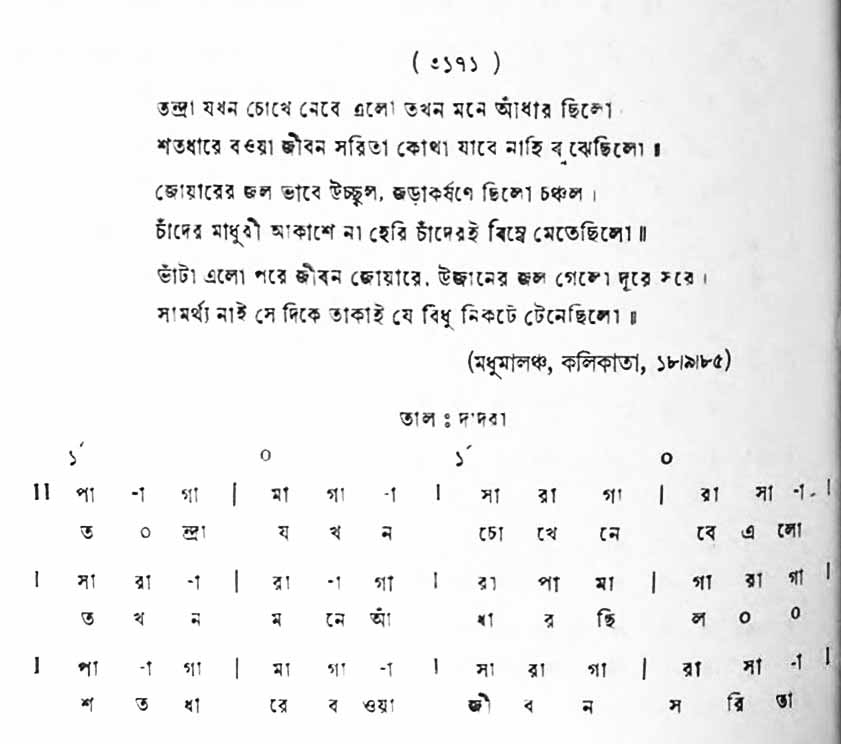 ( ৩১৭১ )
তন্দ্রা যখন চোখে নেবে এলো তখন মনে আঁধার ছিলো
শতধারে বওয়া জীবন সরিতা কোথা যাবে নাহি বুঝেছিলো ॥
জোয়ারের জল ভাবে উচ্ছ্বল, জড়াকর্ষণে ছিলো চঞ্চল ।
চাঁদের মাধুরী আকাশে না হেরি চাঁদেরই বিম্বে মেতেছিলো ॥
ভাঁটা এলো পরে জীবন জোয়ারে, উজানের জল গেলো দূরে সরে ।
সামর্থ্য নাই সে দিকে তাকাই যে বিধু নিকটে টেনেছিলো ॥
(মধুমালঞ্চ, কলিকাতা, ১৮।৯।৮৫)
তাল ঃ দাদরা
১´ ০ ১´ ০
II পা -া গা | মা গা -া I সা রা গা | রা সা -া I
ত ০ ন্দ্রা য খ ন চো খে নে বে এ লো
I সা রা -া | রা -া গা I রা পা মা | গা রা গা I
ত খ ন ম নে আঁ ধা র ছি ল ০ ০
I পা -া গা | মা গা -া I সা রা গা | রা সা -া I
শ ত ধা রে ব ওয়া জী ব ন স রি তা